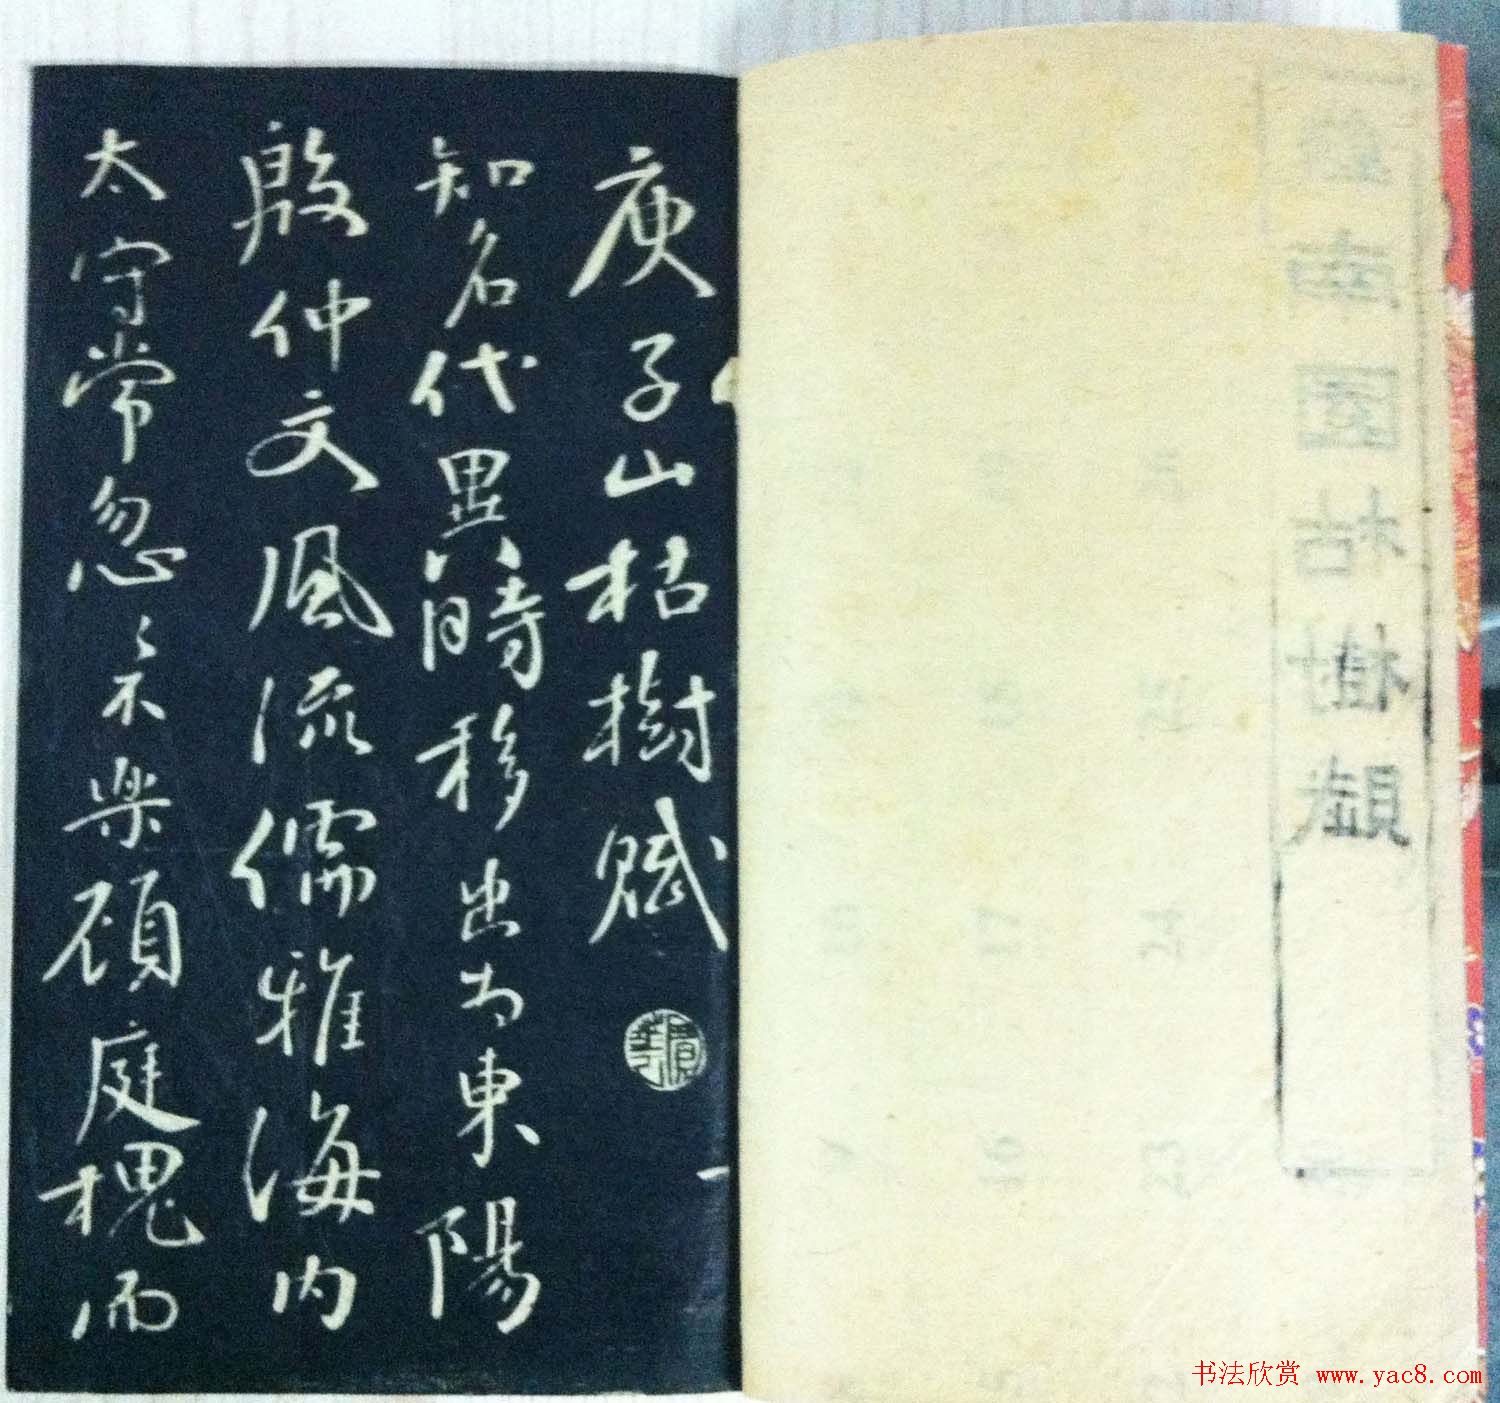 南園枯樹
庾子山枯樹賦
知名代異時移出為東陽
殷仲文風流儒雅海內
太守常忽〻不樂顧庭槐而
书法欣赏 www.yac8.com